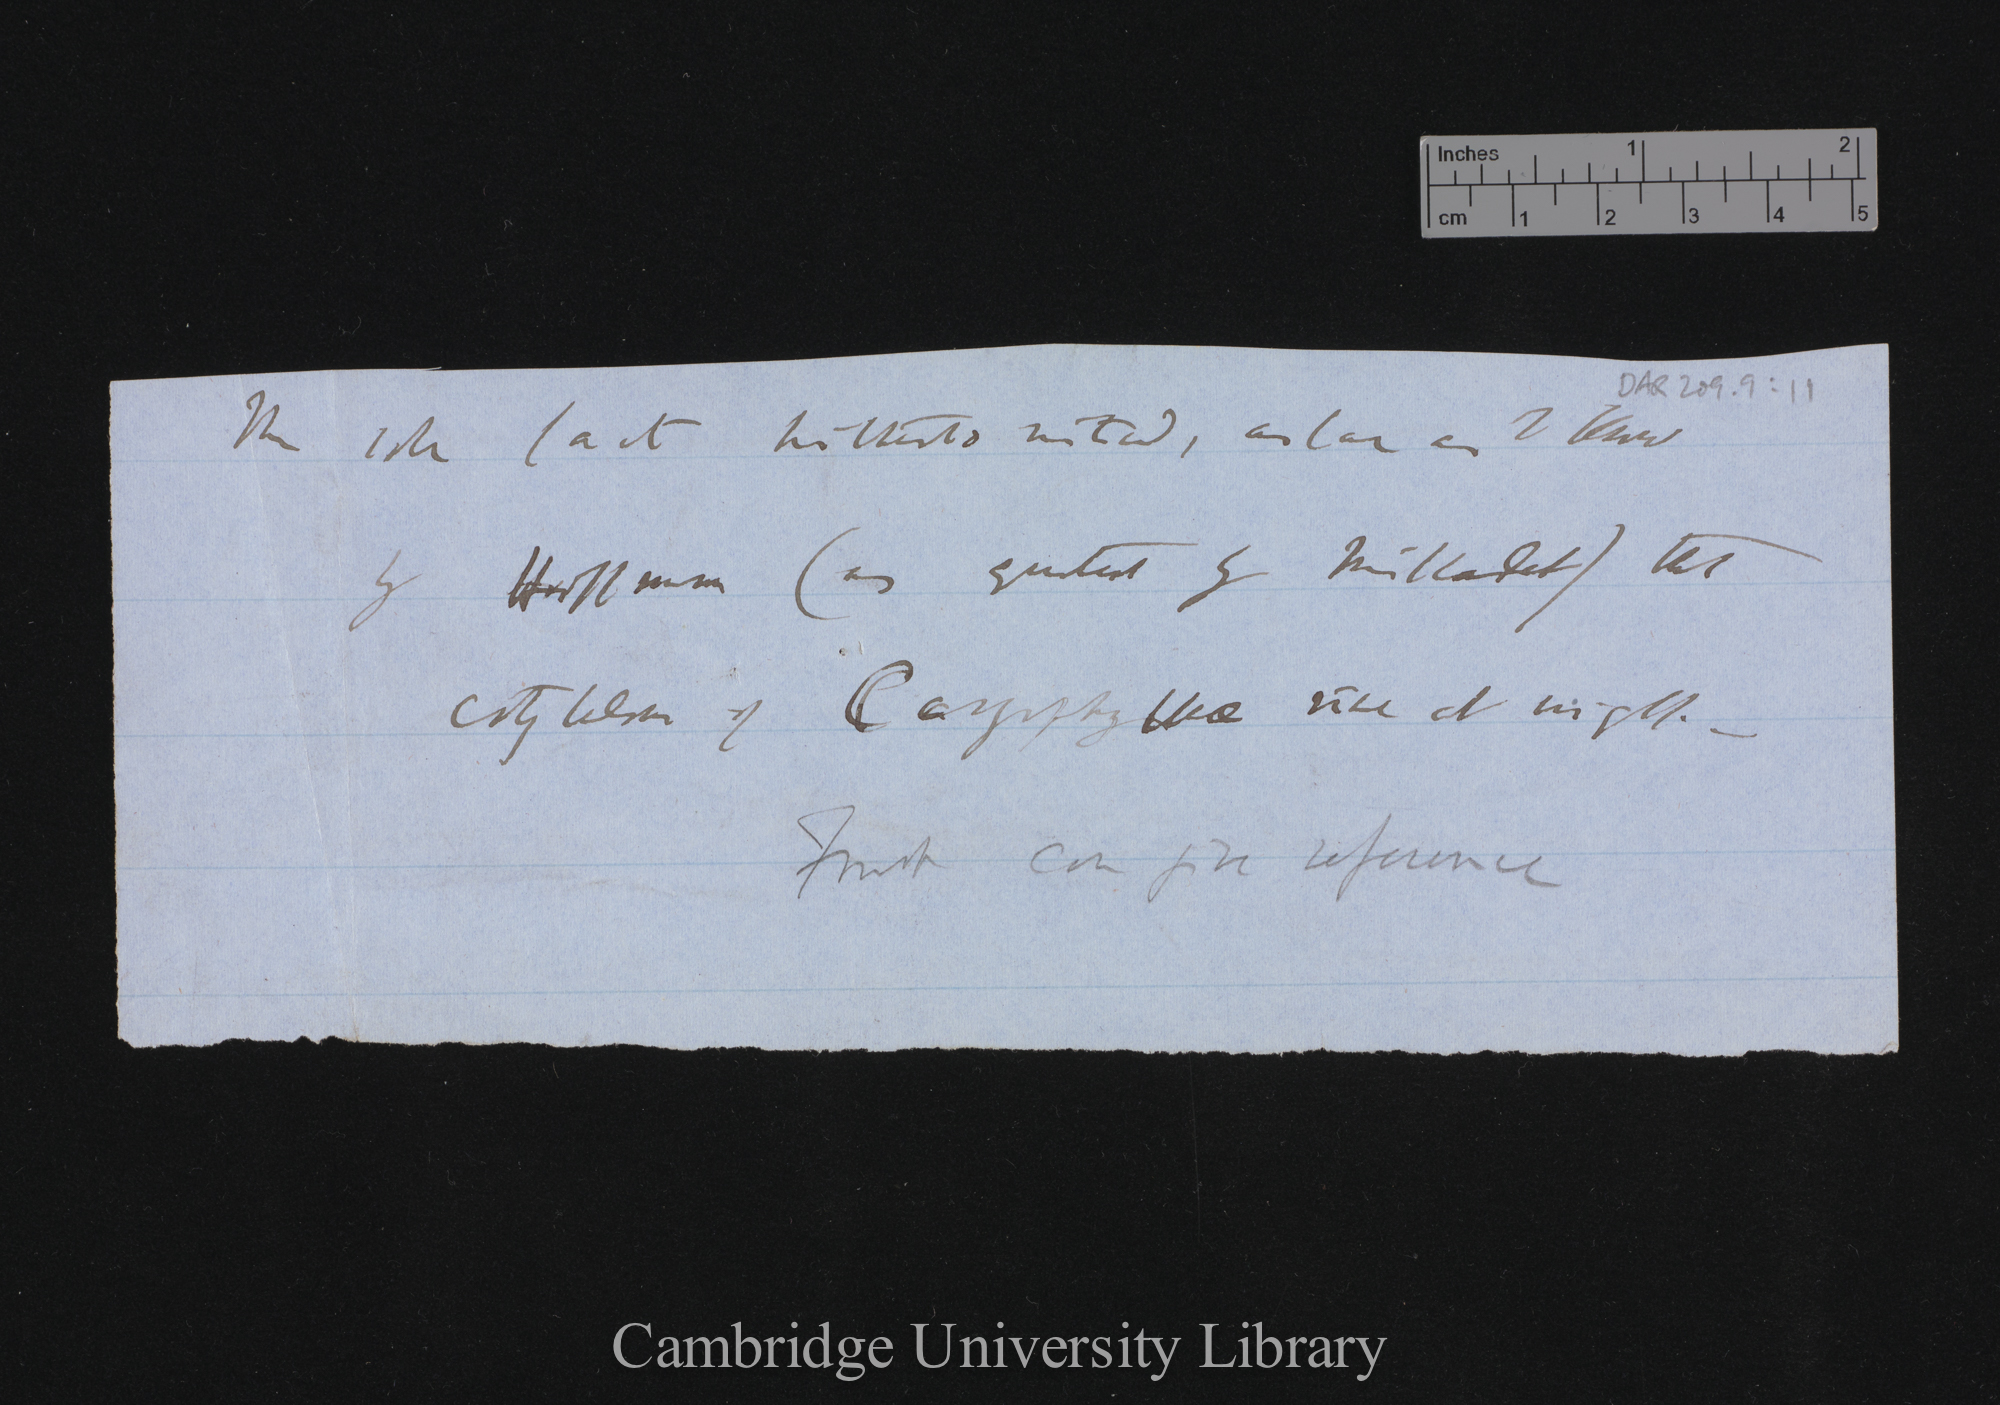 DAR 209.9:11
The sole fact hitherto noticed, as far as I know
by Hoffmann (as quoted by Millardet) that
cotyledons of Caryophyllea rise at night. —
Frank can give reference
Inches 1 2
cm 1 2 3 4 5
Cambridge University Library